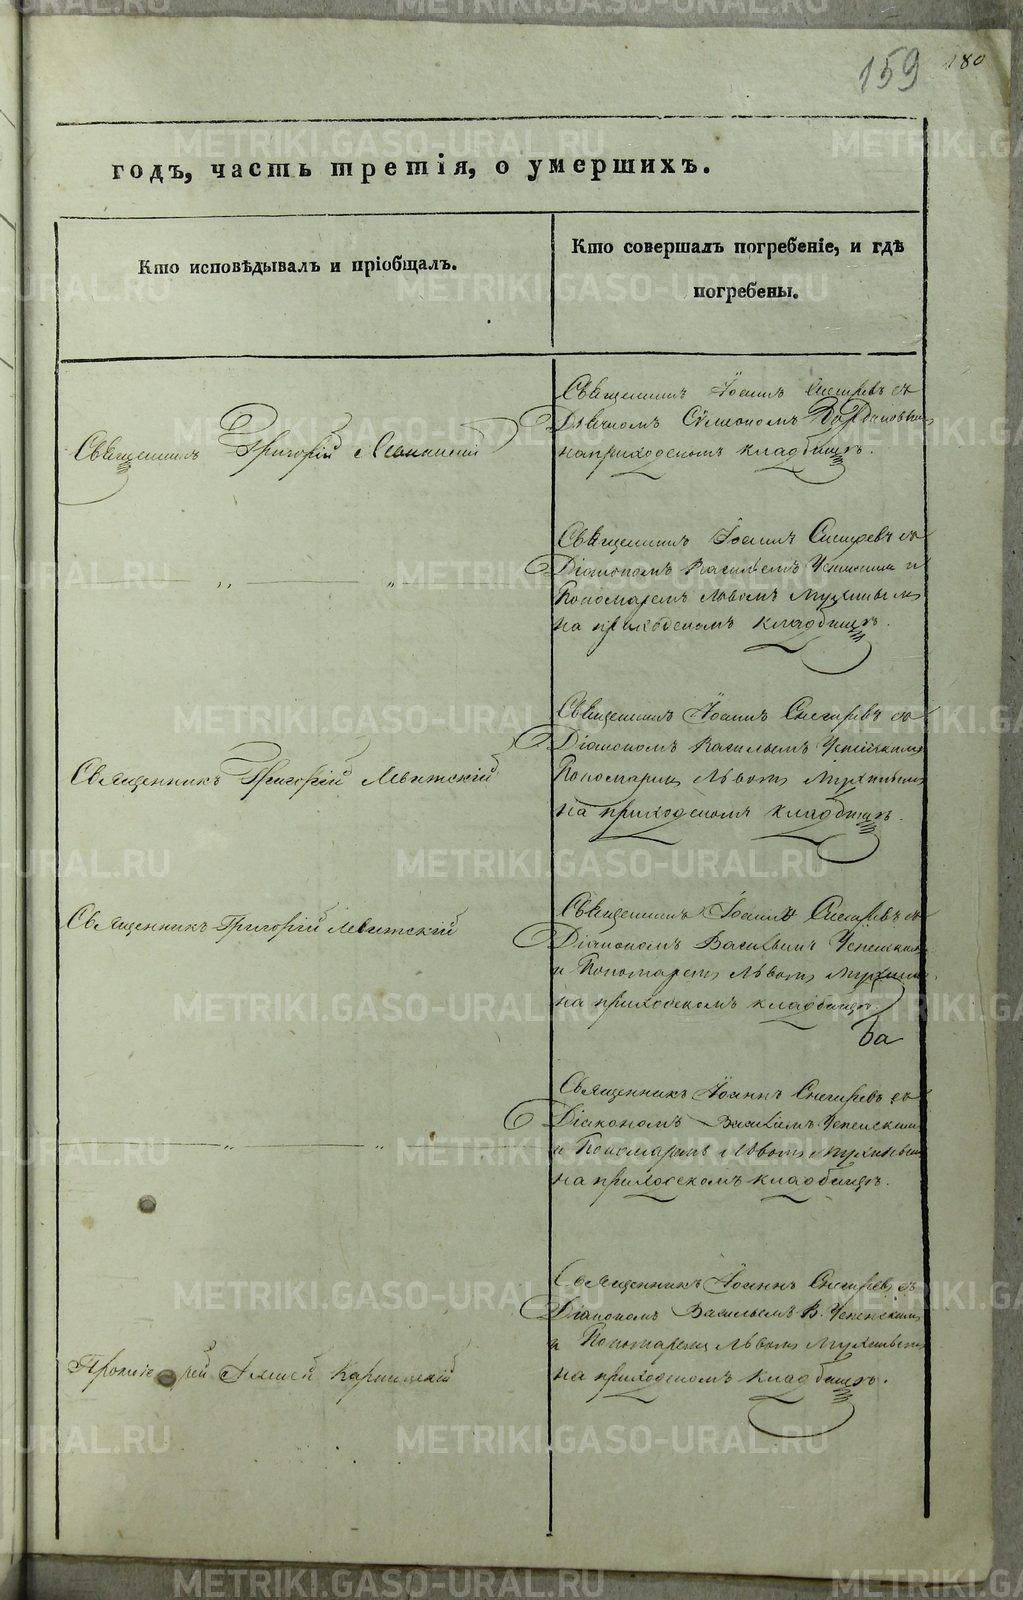 159 180
годъ, часть третія, о умершихъ.
Кто исповѣдывалъ и пріобщалъ.
Кто совершалъ погребеніе, и гдѣ
погребены.
Священникъ Іоаннъ Снегиревъ съ
Дьячкомъ Сѵмеономъ
на приходскомъ кладбищѣ.
Священникъ Григорій Левитскій
Священникъ Іоаннъ Снегиревъ съ
Діакономъ Васильемъ Успенскимъ и
Пономаремъ Львомъ Мухинымъ
на приходскомъ кладбищѣ.
„ „
Священникъ Іоаннъ Снегиревъ съ
Діакономъ Васильемъ Успенскимъ
Пономаремъ Львомъ Мухинымъ
на приходскомъ кладбищѣ.
Священникъ Григорій Левитскій
Священникъ Іоаннъ Снегиревъ съ
Діакономъ Васильемъ Успенскимъ
и Пономаремъ Львомъ Мухинымъ
на приходскомъ кладбищѣ.
Священникъ Григорій Левитскій
Священникъ Іоаннъ Снегиревъ съ
Діакономъ Василіемъ Успенскимъ
и Пономаремъ Львомъ Мухинымъ
на приходскомъ кладбищѣ.
„ „
Священникъ Іоаннъ Снегиревъ съ
Діакономъ Васильемъ В. Успенскимъ
и Пономаремъ Львомъ Мухинымъ
на приходскомъ кладбищѣ.
Протоіерей Алексей
METRIKI.GASO-URAL.RU